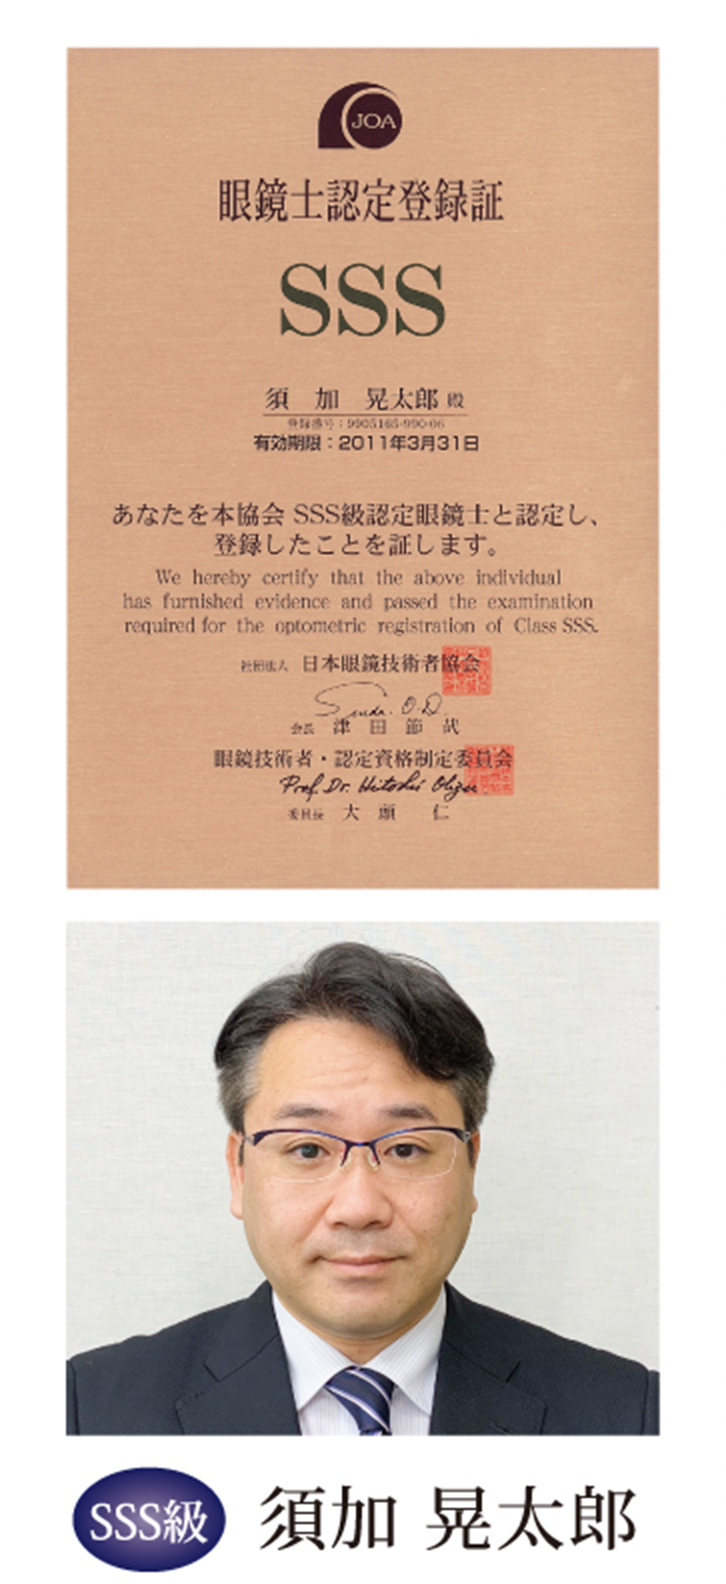 JOA
眼鏡士認定登録証
SSS
須 加 晃太郎 殿
登録番号：9905165-990-06
有効期限：2011年3月31日
あなたを本協会 SSS級認定眼鏡士と認定し、
登録したことを証します。
We hereby certify that the above individual
has furnished evidence and passed the examination
required for the optometric registration of Class SSS.
社団法人 日本眼鏡技術者協会
O.D.
会長 津 田 節 哉
眼鏡技術者・認定資格制定委員会
Prof. Dr. Hitoshi
委員長 大 頭 仁
SSS級 須加 晃太郎